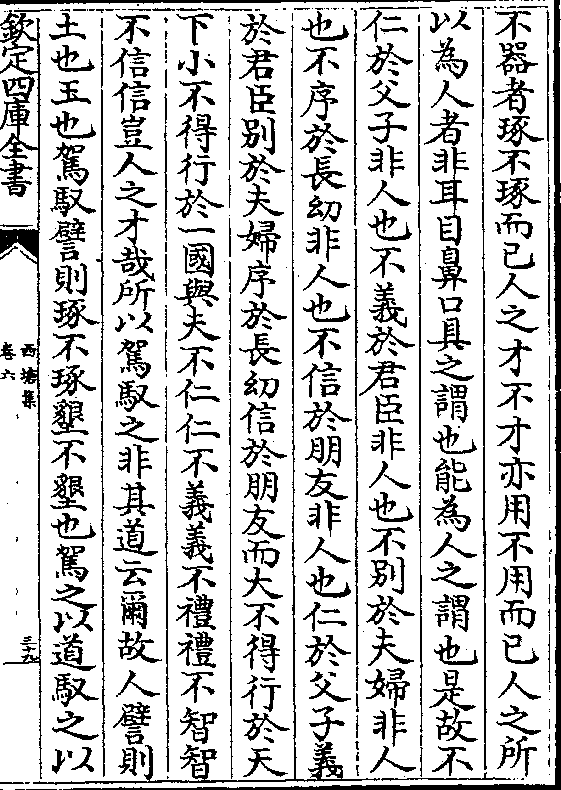 不器者琢不琢而已人之才不才亦用不用而已人之所
以為人者非耳目鼻口具之謂也能為人之謂也是故不
仁於父子非人也不義於君臣非人也不别於夫婦非人
也不序於長幼非人也不信於朋友非人也仁於父子義
於君臣别於夫婦序於長幼信於朋友而大不得行於天
下小不得行於一國與夫不仁仁不義義不禮禮不智智
不信信豈人之才哉所以駕馭之非其道云爾故人譬則
土也玉也駕馭譬則琢不琢墾不墾也駕之以道馭之以
欽定四庫全書
西塘集
卷六
三十九